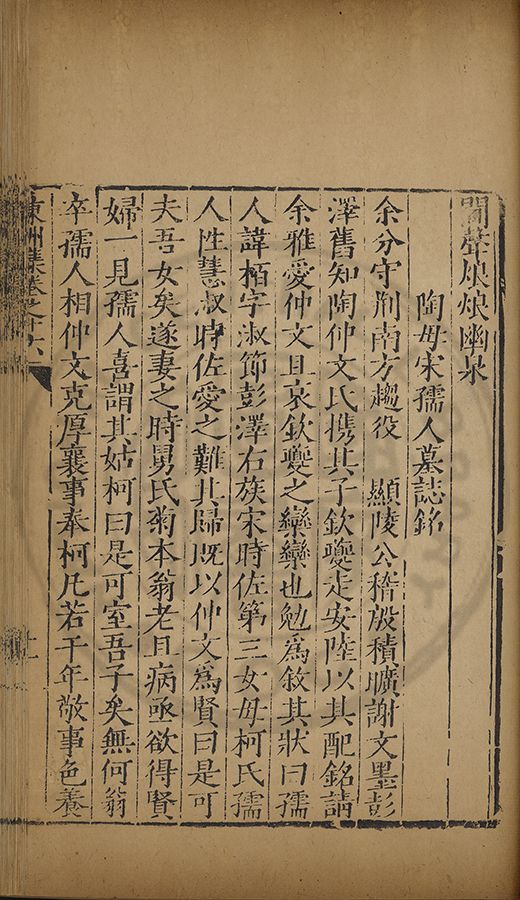 聞聲烺烺幽泉
陶母宋孺人墓誌銘
余分守荆南方趨役 顯陵公稽殷積曠謝文墨彭
澤舊知陶仲文氏携其子欽夔走安陸以其配銘請
余雅愛仲文且哀欽夔之欒欒也勉為敘其狀曰孺
人諱栢字淑節彭澤右族宋時佐第三女母柯氏孺
人性慧淑時佐愛之難其歸既以仲文為賢曰是可
夫吾女矣遂妻之時舅氏菊本翁老且病亟欲得賢
婦一見孺人喜謂其姑柯曰是可室吾子矣無何翁
卒孺人相仲文克厚襄事奉柯凡若干年敬事色養
東洲集卷之十六